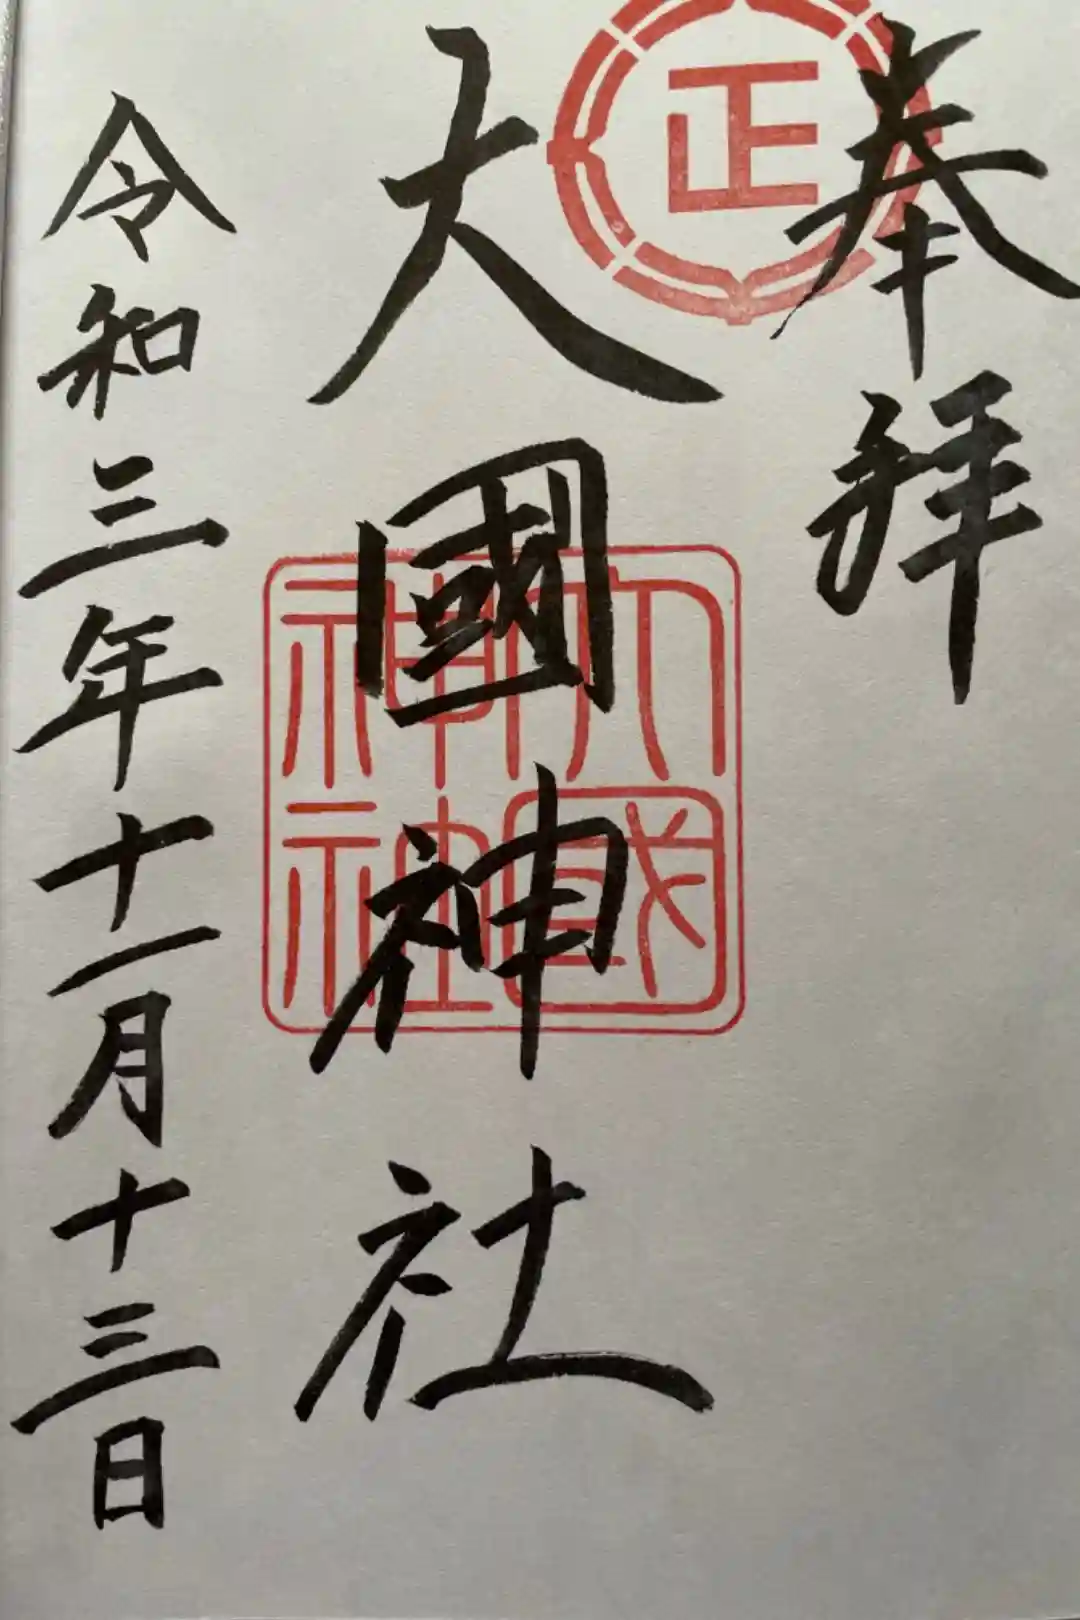 奉拝
正
大國神社
大國
神社
令和三年十一月十三日